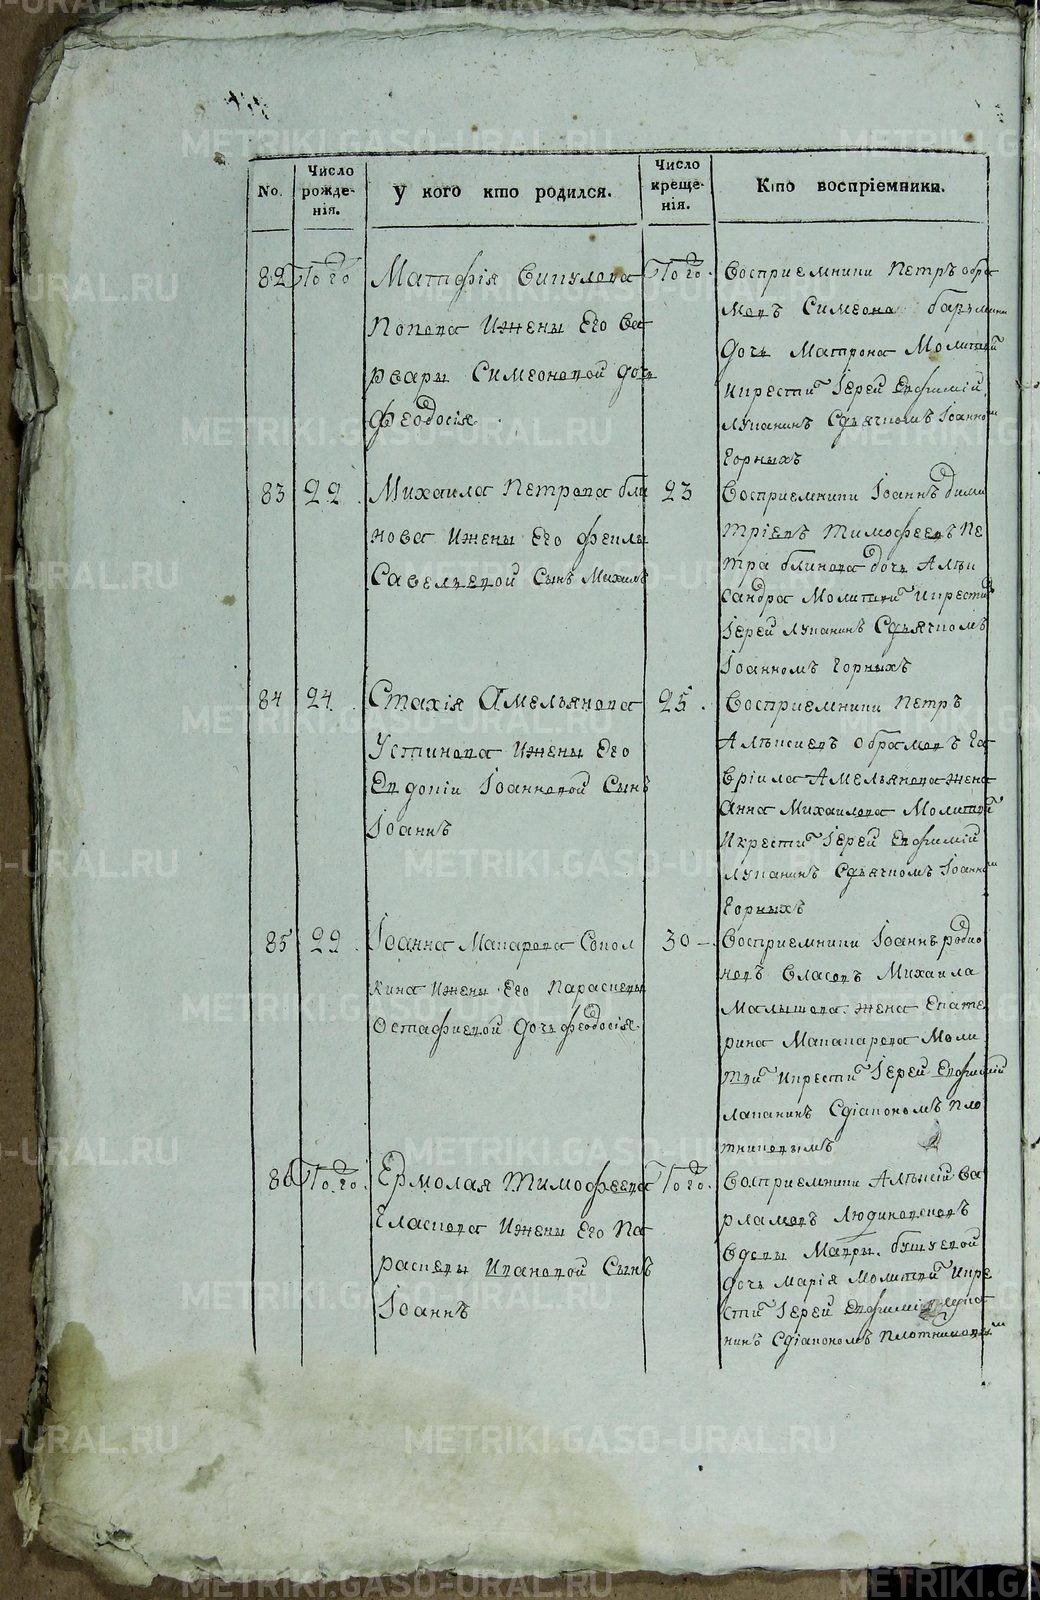 No.
Число рожде-нія.
У кого кто родился.
Число креще-нія.
Кто воспріемники.
82 Того
Матфія Викулова
Попова Ижены Его Ва
рвары Симеоновой дочь
Феодосія
Того.
Восприемники Петръ обра
мовъ Симеона
дочь Матрона Молитвй
Икрестил Іерей Евфимій
Лупанинъ Сдьячкомъ Іоанном
Горныхъ
83 22
Михаила Петрова бли
нова Ижены Его
Савельевой Сынъ Михаилъ
23
Восприемники Іоаннъ дими
тріевъ Тимофеевъ Пе
тра блинова дочь Алѣк
сандра Молитвй Икрестилъ
Іерей Лупанинъ Сдьячкомъ
Іоанномъ Горныхъ
84 24.
Стахія Амельянова
Устинова Ижены Его
Евдокіи Іоанновой Сынъ
Іоаннъ
25.
Восприемники Петръ
Алѣксиевъ обрамовъ Га
вріила Амельянова жена
Анна Михаилова Молитвй
Икрестил Іерей Евфимій
Лупанинъ Сдьячкомъ Іоанном
Горныхъ
85 29.
Іоанна Макарова Сокол
кина Ижены Его Параскевы
Остафиевой дочь феодосія
30 -
Восприемники Іоаннъ родио
новъ Власовъ Михаила
Малышова жена Екате
рина Макарова Моли
твй Икрестил Іерей Евфимій
лапанинъ Сдіакономъ Пло
тниковымъ
86 Того.
Ермолая Тимофеева
Гласкова Ижены Его Па
раскевы Ивановой Сынъ
Іоаннъ
Того.
Восприемники Алѣксій Ва
рламовъ Людиновсковъ
вдовы Матры. бушуевой
дочь марія Молитвй Икре
стил Іерей Евфимій
нинъ Сдіакономъ Плотниковым
METRIKI.GASO-URAL.RU